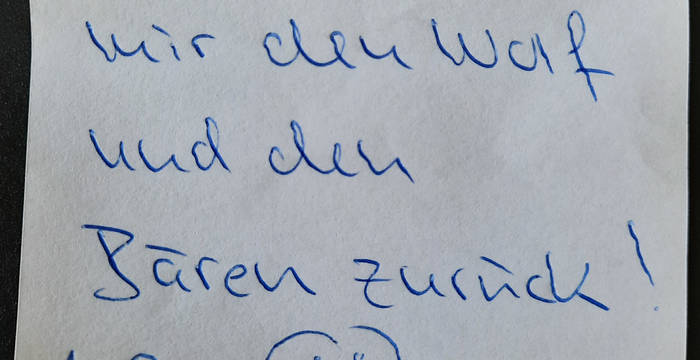 mir den Wolf
und den
Bären zurück!